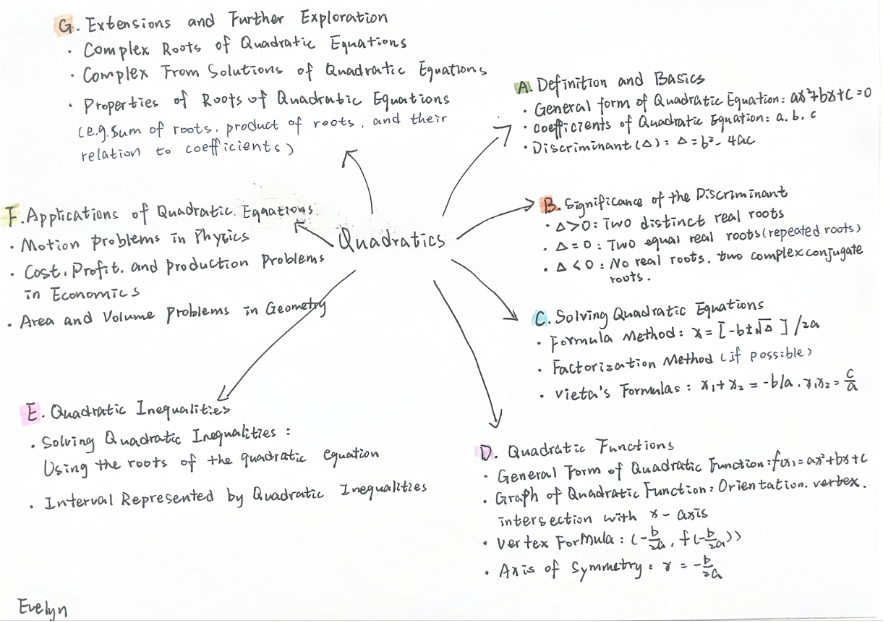 G. Extensions and Further Exploration
· Complex Roots of Quadratic Equations
· Complex From Solutions of Quadratic Equations
· Properties of Roots of Quadratic Equations
(e.g. Sum of roots, product of roots, and their
relation to coefficients)
A. Definition and Basics
· General form of Quadratic Equation: ax²+bx+c=0
· coefficients of Quadratic Equation: a. b. c
· Discriminant (Δ): Δ=b²-4ac
B. Significance of the Discriminant
· Δ>0: Two distinct real roots
· Δ=0: Two equal real roots (repeated roots)
· Δ<0: No real roots. two complex conjugate
roots.
F. Applications of Quadratic Equations
· Motion Problems in Phytics
· Cost, Profit, and production Problems
in Economics
· Area and Volume Problems in Geometry
Quadratics
C. Solving Quadratic Equations
· Formula Method: x=[-b±√Δ]/2a
· Factorization Method (if possible)
· Vieta's Formulas: x₁+x₂=-b/a, x₁x₂=c/a
E. Quadratic Inequalities
· Solving Quadratic Inequalities:
Using the roots of the quadratic equation
· Interval Represented by Quadratic Inequalities
D. Quadratic Functions
· General Form of Quadratic Function: f(x)=ax²+bx+c
· Graph of Quadratic Function: Orientation, vertex,
intersection with x-axis
· Vertex Formula: (-b/2a, f(-b/2a))
· Axis of Symmetry: x=-b/2a
Evelyn